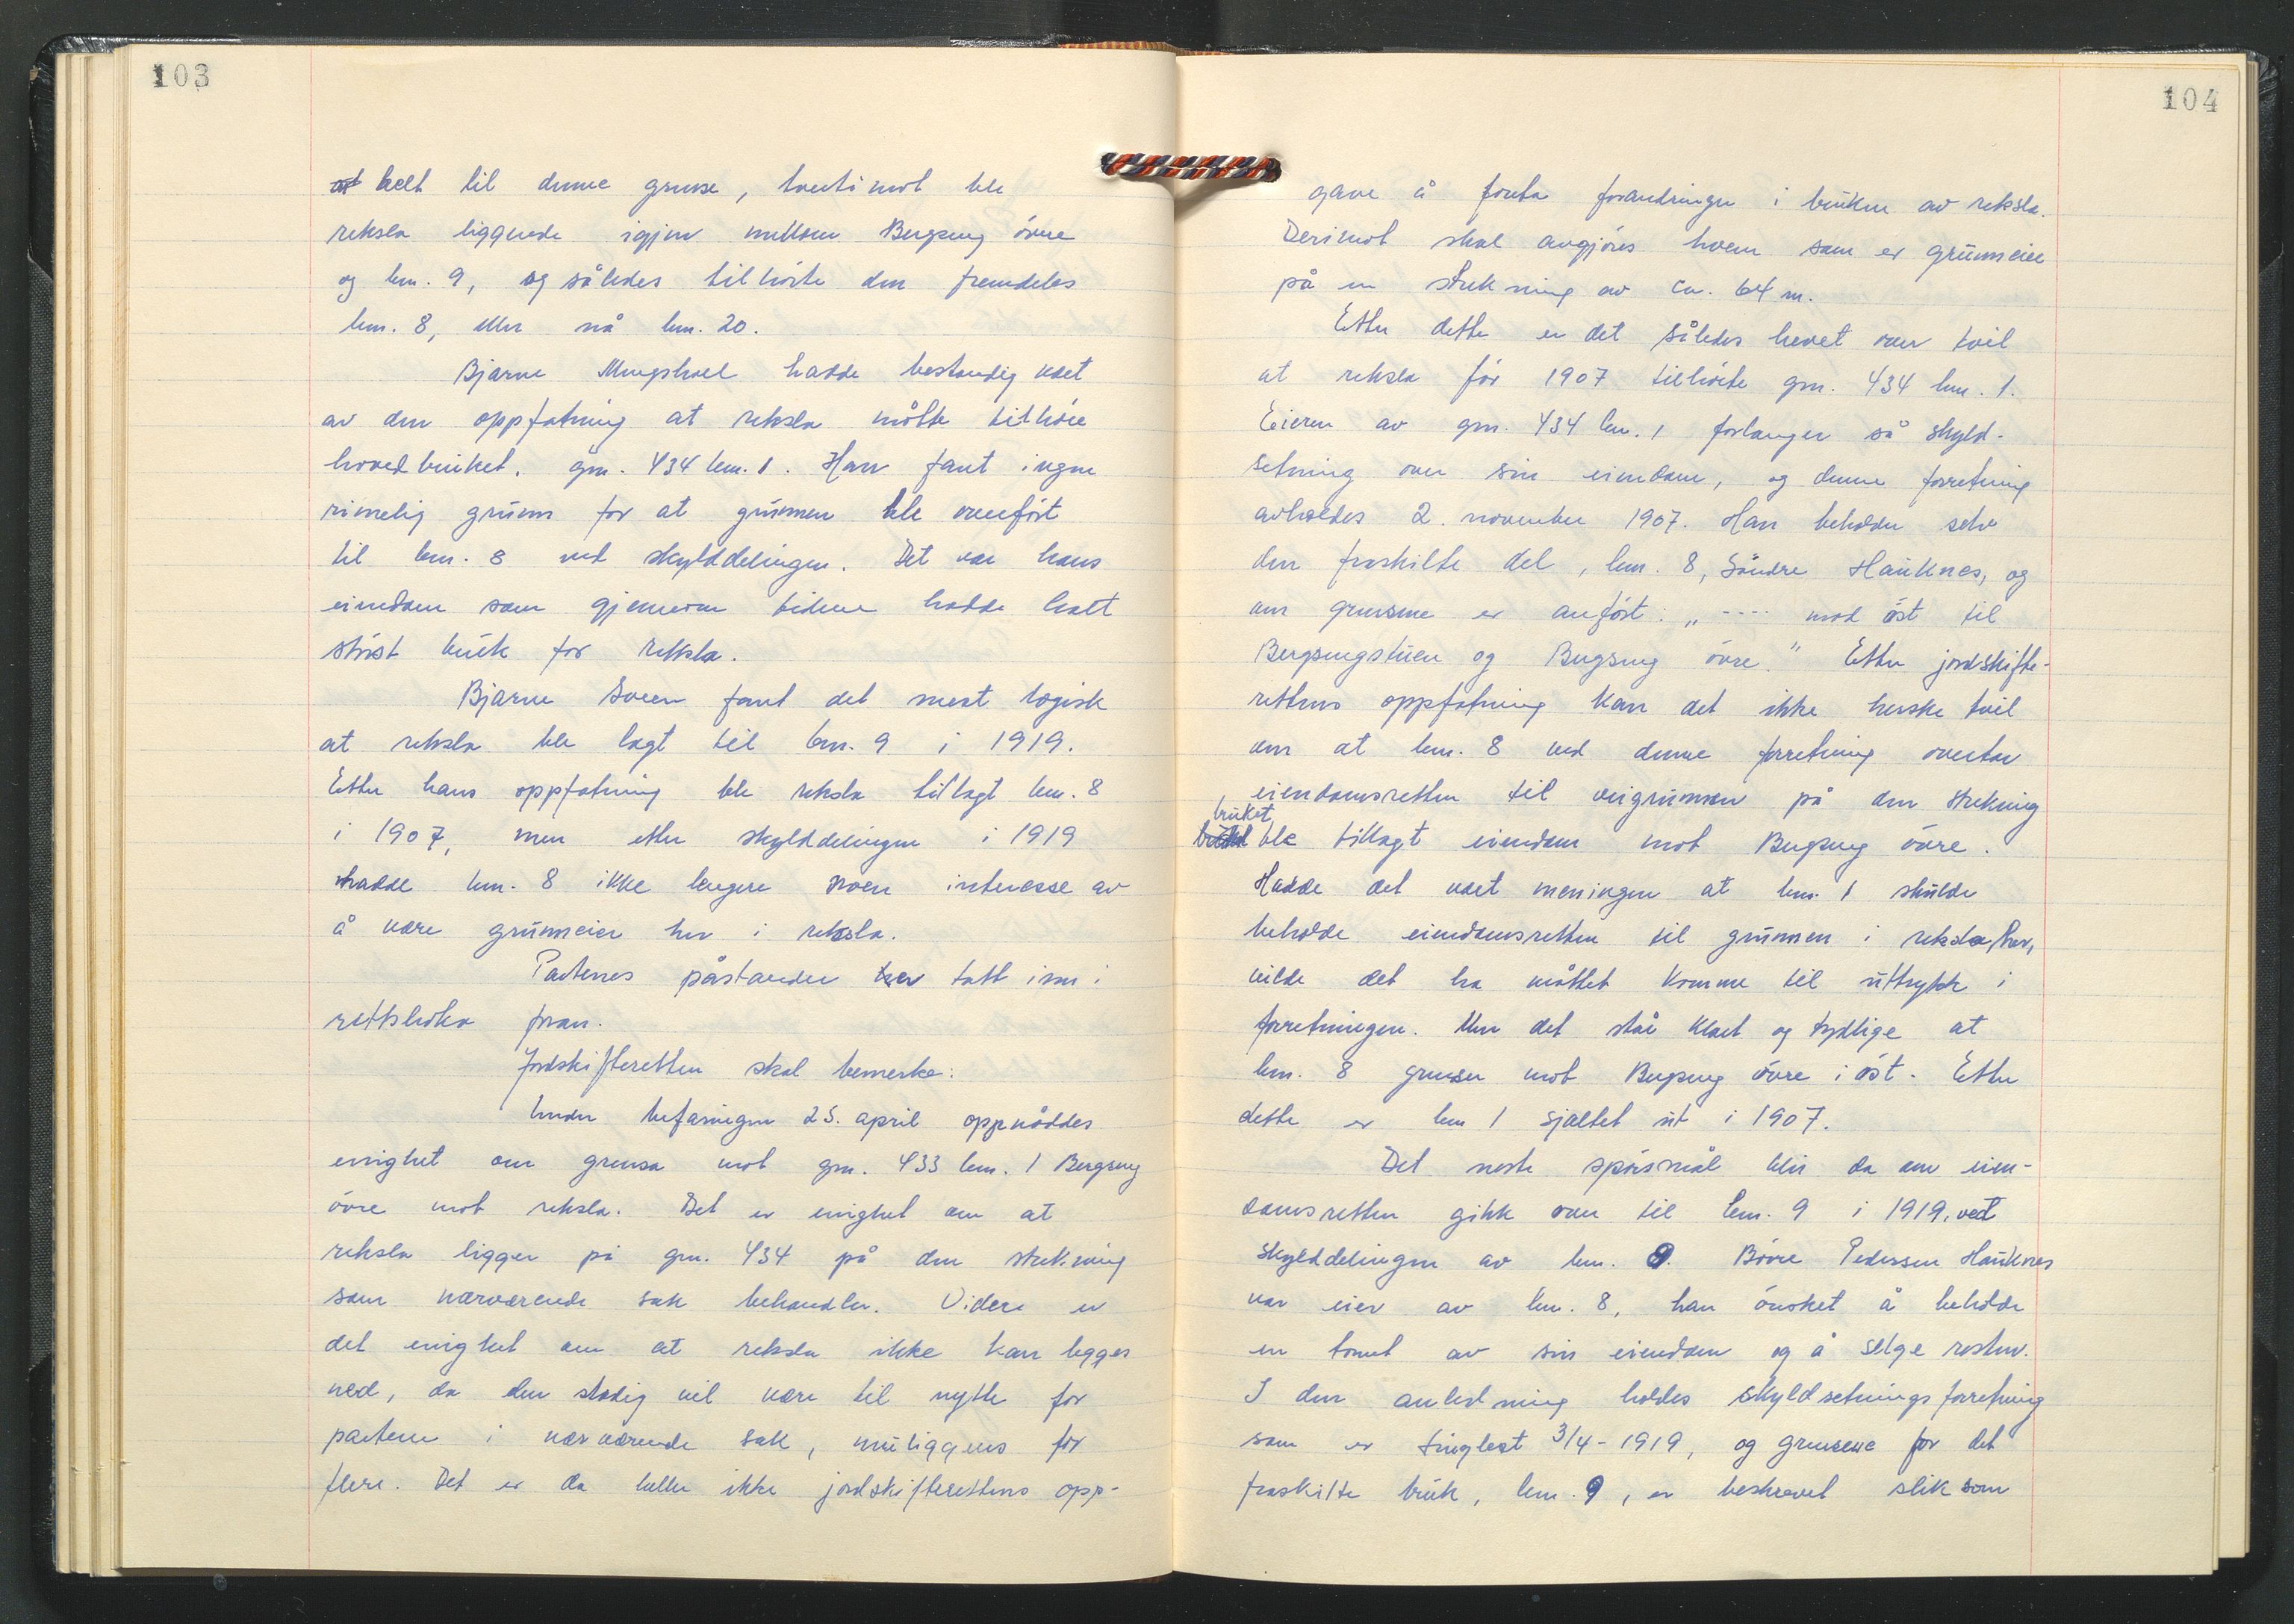 103
helt til denne grense, tvertimot ble
reksla liggende igjen mellom Bergseng övre
og bnr. 9, og således tilhörte den fremdeles
bnr. 8, eller nå bnr. 20.
Bjarne hadde bestandig vært
av den oppfatning at reksla måtte tilhöre
hovedbruket, gnr. 434 bnr. 1. Han fant ingen
rimelig grunn for at grunnen ble overfört
til bnr. 8 ved skylddelingen. Det var hans
eiendom som gjennom tidene hadde hatt
störst bruk for reksla.
Bjarne Sveen fant det mest logisk
at reksla ble lagt til bnr. 9 i 1919.
Etter hans oppfatning ble reksla tillagt bnr. 8
i 1907, men etter skylddelingen i 1919
hadde bnr. 8 ikke lengere noen interesse av
å være grunneier her i reksla.
Partenes påstander er tatt inn i
rettsboka foran.
Jordskifteretten skal bemerke:
Under befaringen 25. april oppnåddes
enighet om grensa mot gnr. 433 bnr. 1 Bergseng
övre mot reksla. Det er enighet om at
reksla ligger på gnr. 434 på den strekning
som nærværende sak behandler. Videre er
det enighet om at reksla ikke kan legges
ned, da den stadig vil være til nytte for
partene i nærværende sak, muliggens for
flere. Det er da heller ikke jordskifterettens opp-
104
gave å foreta forandringer i bruken av reksla.
Derimot skal avgjöres hvem som er grunneier
på en strekning av ca. 64 m.
Etter dette er det således hevet over tvil
at reksla för 1907 tilhörte gnr. 434 bnr. 1.
Eieren av gnr. 434 bnr. 1 forlanger så skyld-
setning over sin eiendom, og denne forretning
avholdes 2. november 1907. Han beholder selv
den fraskilte del, bnr. 8, Söndre Hauknes, og
om grensene er anfört: „ ---- mod öst til
Bergsengstuen og Bergseng övre." Etter jordskifte-
rettens oppfatning kan det ikke herske tvil
om at bnr. 8 ved denne forretning overtar
eiendomsretten til veigrunnen på den strekning
bruket
ble tillagt eiendom mot Bergseng övre.
Hadde det vært meningen at bnr. 1 skulde
beholde eiendomsretten til grunnen i reksla her,
vilde det ha måttet komme til uttrykk i
forretningen. Men det står klart og tydlige at
bnr. 8 grenser mot Bergseng övre i öst. Etter
dette er bnr 1 sjaltet ut i 1907.
Det neste spörsmål blir da om eien-
domsretten gikk over til bnr. 9 i 1919, ved
skylddelingen av bnr. 9. Börre Pedersen Hauknes
var eier av bnr. 8, han önsket å beholde
en tomt av sin eiendom og å selge resten.
I den anledning holdes skyldsetningsforretning
som er tinglest 3/4-1919, og grensene for det
fraskilte bruk, bnr. 9, er beskrevet slik som